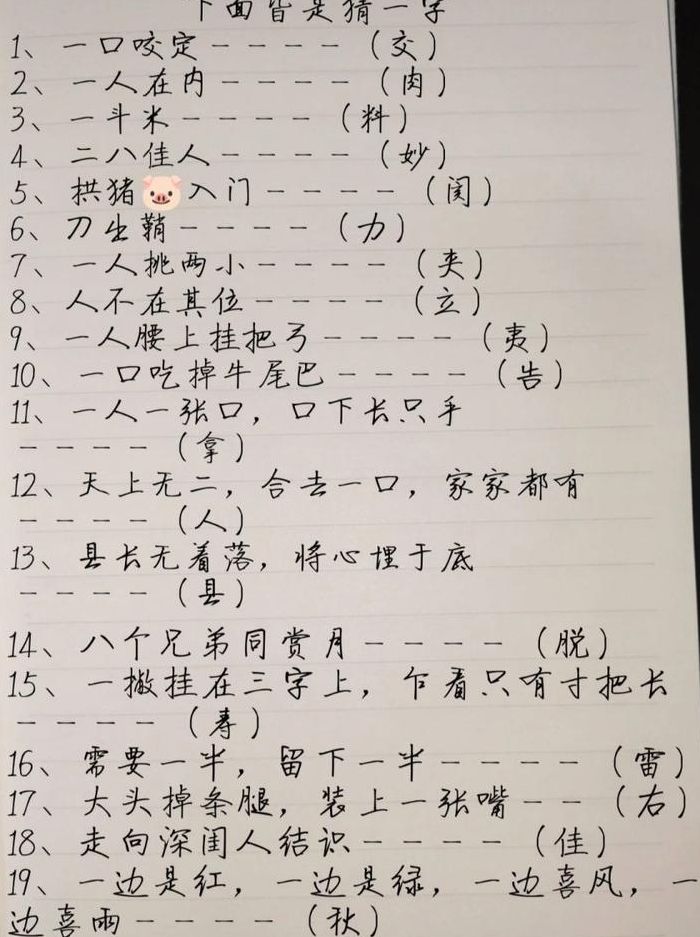 下面皆是猜一字
1、一口咬定----（交）
2、一人在内----（肉）
3、一斗米----（料）
4、二八佳人----（妙）
5、拱猪🐷入门----（闺）
6、刀出鞘----（力）
7、一人挑两小----（夹）
8、人不在其位----（立）
9、一人腰上挂把弓----（夷）
10、一口吃掉牛尾巴----（告）
11、一人一张口，口下长只手
----（拿）
12、天上无二，合去一口，家家都有
----（人）
13、县长无着落，将心埋于底
----（县）
14、八个兄弟同赏月----（脱）
15、一撇挂在三字上，乍看只有寸把长
----（寿）
16、需要一半，留下一半----（雷）
17、大头掉条腿，装上一张嘴--（右）
18、走向深闺人结识----（佳）
19、一边是红，一边是绿，一边喜风，一
边喜雨----（秋）